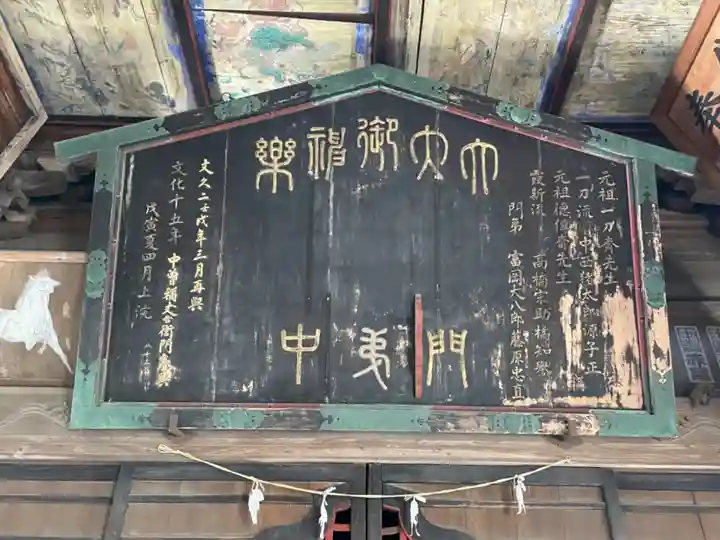 元祖一刀斎先生
一刀流 中西猪太郎源子正
元祖徳俊斎先生
霞新流 高橋宗助橘知興
門弟 富岡大八郎藤原忠直
大大御神樂
門弟中
文久二壬戌年三月再興
文化十五年 中曽祢文右衛門
戊寅夏四月上浣